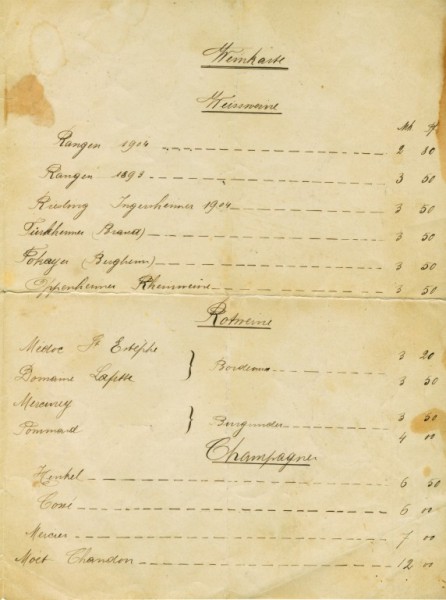 Weinkarte
Weissweine
Mk ₰
Rangen 1904 2 80
Rangen 1893 3 50
Riesling Ingersheimer 1904 3 50
Türkheimer (Brand) 3 50
Tokayer (Bergheim) 3 50
Oppenheimer Rheinweine 3 50
Rotweine
Medoc St Estèphe } Bordeaux 3 20
Domaine Lafitte 3 50
Mercurey } Burgunder 3 50
Pommard 4 00
Champagner
Henkel 6 50
6 00
Mercier 7 00
Moet Chandon 12 00